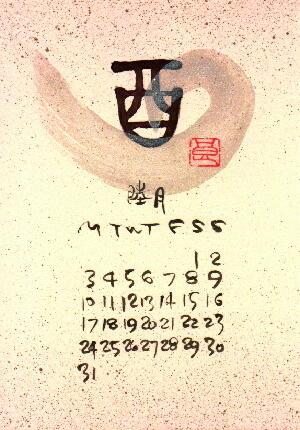 酉
睦月
M T W T F S S
1 2
3 4 5 6 7 8 9
10 11 12 13 14 15 16
17 18 19 20 21 22 23
24 25 26 27 28 29 30
31